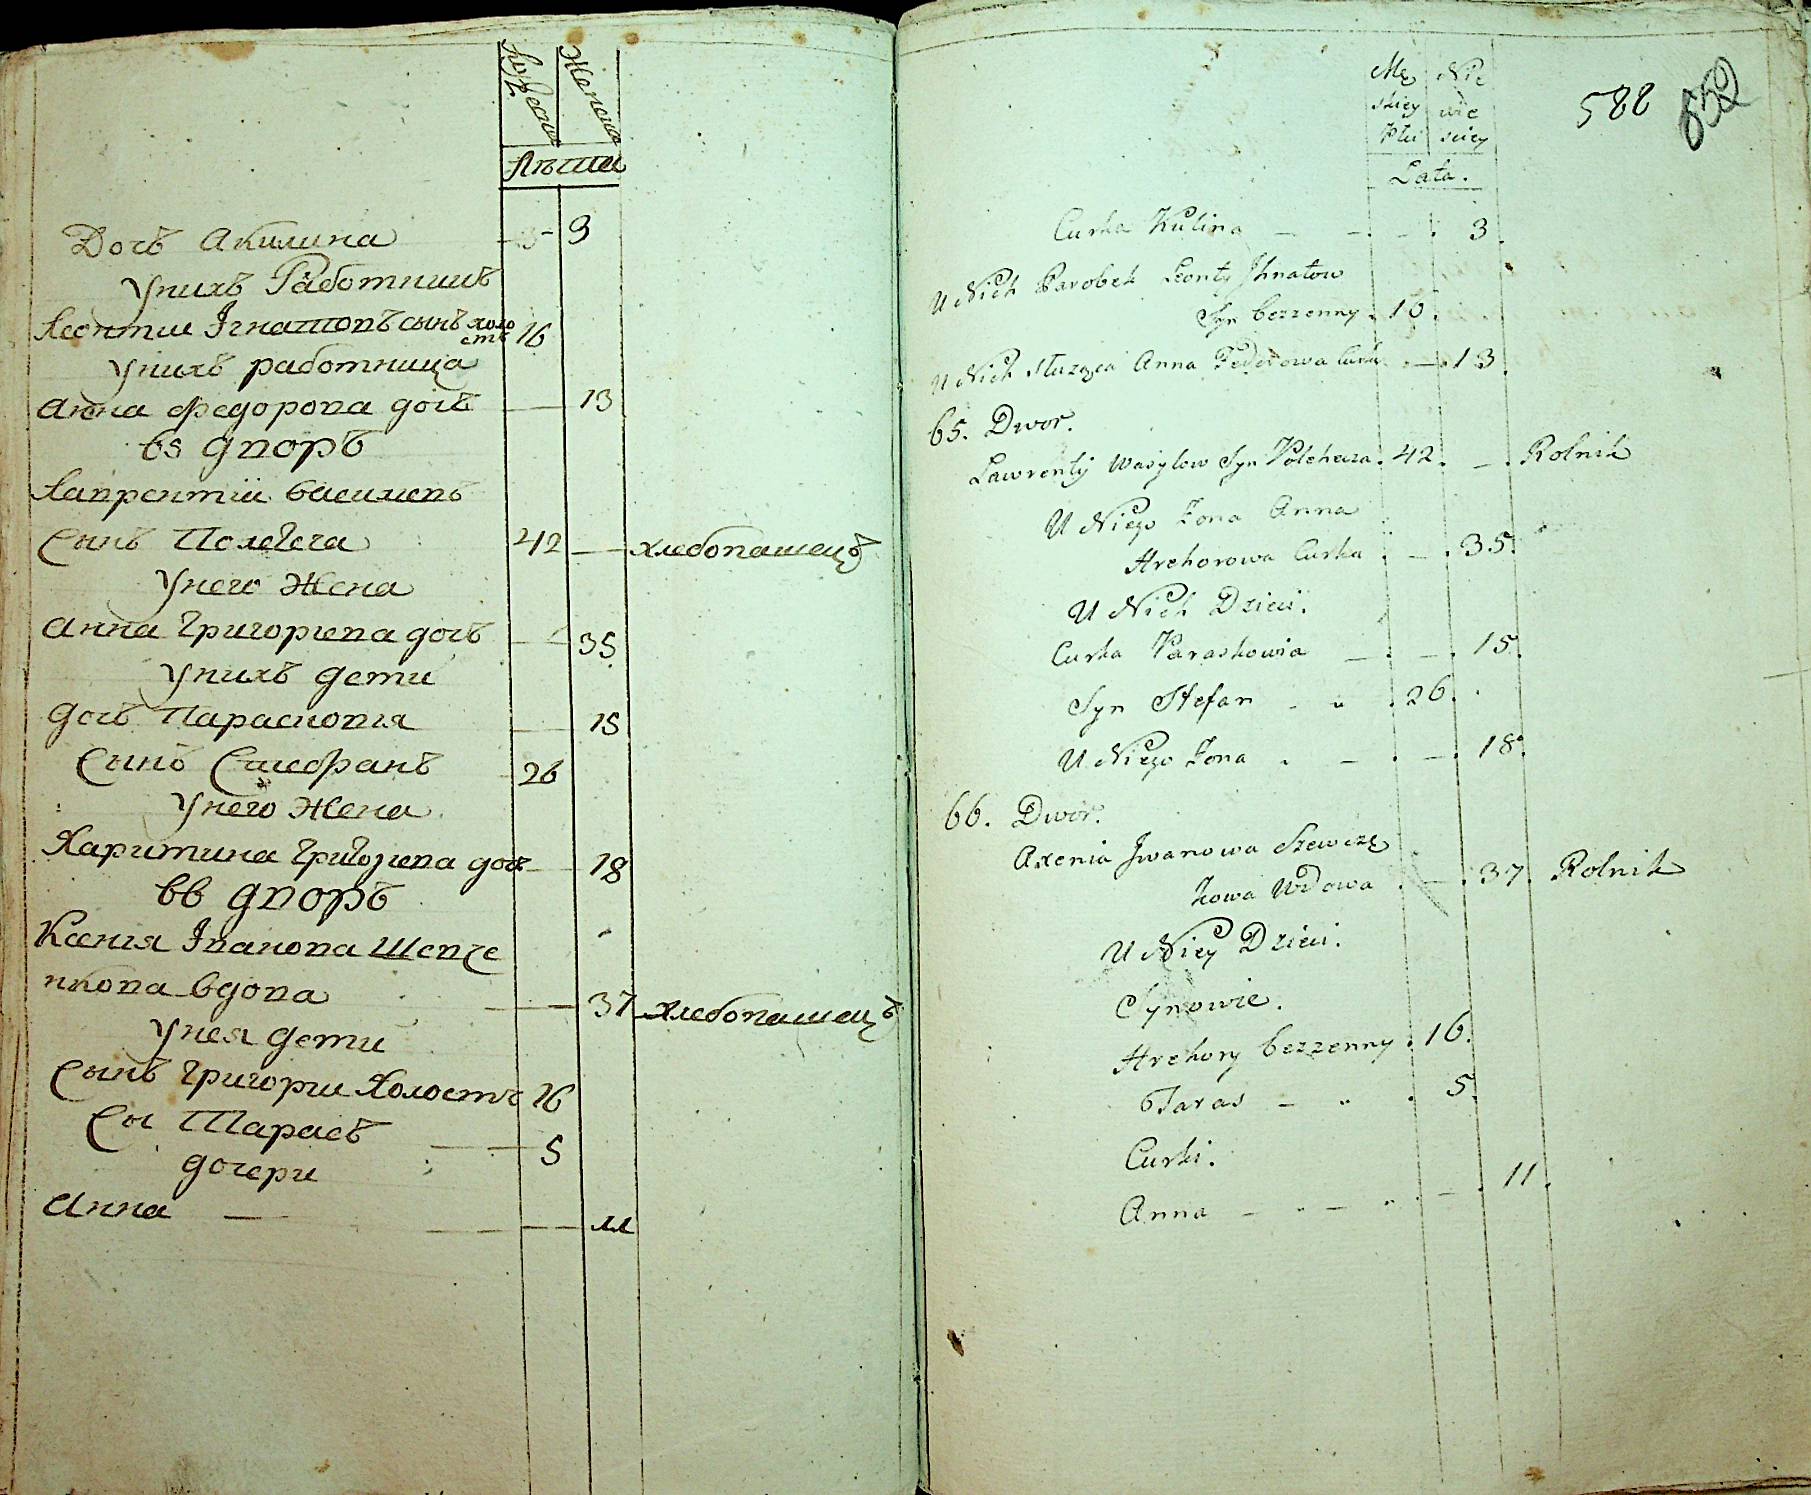 Мужеска
Женска
Лѣта
Дочъ Акилина 3
Унихъ Работникъ
Леонтии Iгнатовъ сынъ холо
стъ 16
Унихъ работница
Анна Федорова дочъ — 13
65 дворъ
Лаврентiй Василевъ
Сынъ Полегеча 42 — хлебопашецъ
Унего Жена
Анна Григориева дочъ — 35
Унихъ дети
Дочъ Парасковiя — 15
Сынъ Стефанъ 26
Унего Жена
Харитина Григориева доч — 18
66 дворъ
Ксенiя Iванова Шевче
нкова вдова — 37 хлебопашецъ
Унея дети
Сынъ Григории Холостъ 16
Сы Тарасъ — 5
дочери
Анна — — 11
Mę Nie
skiey wie
Płci sciey
Lata.
588
Curka Kulina — — 3.
U Nich Parobek Leonty Ihnatow
Syn bezzenny. 16.
U Nich służąca Anna Federowa Curka. — . 13.
65. Dwor.
Lawrentÿ Wasylow Syn . 42. — . Rolnik
U Niego Zona Anna
Hrehorowa Curka . — . 35.
U Nich Dzieci.
Curka Paraskowia — . — . 15.
Syn Stefan - " . 26. .
U Niego Zona . — . — . 18.
66. Dwor.
Axenia Jwanowa Szewczę
kowa Wdowa . — . 37. Rolnik
U Niey Dzieci.
Synowie.
Hrehory bezzenny . 16.
Taras — " . 5.
Curki.
Anna — " — " . — . 11.